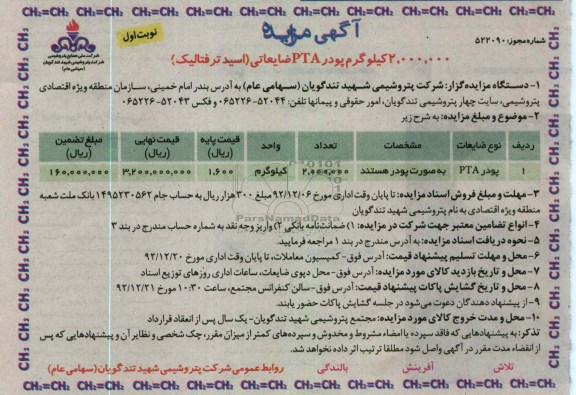 CH2=CH2 CH2=CH2 CH2=CH2 CH2=CH2 CH2=CH2 CH2=CH2 CH2=CH2 CH2=CH2
آگهی مزایده
نوبت اول
شماره مجوز: ۵۲۲۰۹۰
شرکت ملی صنایع پتروشیمی
شرکت پتروشیمی شهید تندگویان
(سهامی عام)
۲,۰۰۰,۰۰۰ کیلوگرم پودر PTA ضایعاتی (اسید ترفتالیک)
۱- دستگاه مزایده گزار: شرکت پتروشیمی شهید تندگویان (سهامی عام) به آدرس بندر امام خمینی، سازمان منطقه ویژه اقتصادی
پتروشیمی، سایت چهار پتروشیمی تندگویان، امور حقوقی و پیمانها تلفن: ۵۲۰۴۴-۰۶۵۲۲۶ و فکس ۵۲۰۴۳-۰۶۵۲۲۶
۲- موضوع و مبلغ مزایده: به شرح زیر
ردیف نوع ضایعات مشخصات تعداد واحد قیمت پایه (ریال) قیمت نهایی (ریال) مبلغ تضمین (ریال)
۱ پودر PTA به صورت پودر هستند ۲,۰۰۰,۰۰۰ کیلوگرم ۱,۶۰۰ ۳,۲۰۰,۰۰۰,۰۰۰ ۱۶۰,۰۰۰,۰۰۰
۳- مهلت و مبلغ فروش اسناد مزایده: تا پایان وقت اداری مورخ ۹۲/۱۲/۰۶ مبلغ ۳۰۰ هزار ریال به حساب جام ۱۴۹۵۲۳۰۵۶۲ بانک ملت شعبه
منطقه ویژه اقتصادی به نام پتروشیمی شهید تندگویان
ParsNamadData
۴- انواع تضامین معتبر جهت شرکت در مزایده: ۱) ضمانتنامه بانکی ۲) واریز وجه نقد به شماره حساب مندرج در بند ۳
۵- نحوه دریافت اسناد مزایده: به آدرس مندرج در بند ۱ مراجعه فرمایید.
۶- محل و مهلت تسلیم پیشنهاد قیمت: آدرس فوق- کمیسیون معاملات، تا پایان وقت اداری مورخ ۹۲/۱۲/۲۰
۷- محل و تاریخ بازدید کالای مورد مزایده: آدرس فوق- محل دپوی ضایعات، ساعات اداری روزهای توزیع اسناد
۸- محل و تاریخ گشایش پاکات پیشنهاد قیمت: آدرس فوق- سالن کنفرانس مجتمع، ساعت ۱۰:۳۰ مورخ ۹۲/۱۲/۲۱
۹- از پیشنهاد دهندگان دعوت می‌شود در جلسه گشایش پاکات حضور یابند.
۱۰- محل و مدت خروج کالای مورد مزایده: مجتمع پتروشیمی شهید تندگویان- یک سال پس از انعقاد قرارداد
تذکر: به پیشنهادهایی که فاقد سپرده یا امضاء مشروط و مخدوش و سپرده‌های کمتر از میزان مقرر، چک شخصی و نظایر آن و پیشنهادهایی که پس
از انقضاء مدت مقرر در آگهی واصل شود مطلقا ترتیب اثر داده نخواهد شد.
تلاش آفرینش بالندگی
روابط عمومی شرکت پتروشیمی شهید تندگویان (سهامی عام)
CH2=CH2 CH2=CH2 CH2=CH2 CH2=CH2 CH2=CH2 CH2=CH2 CH2=CH2 CH2=CH2